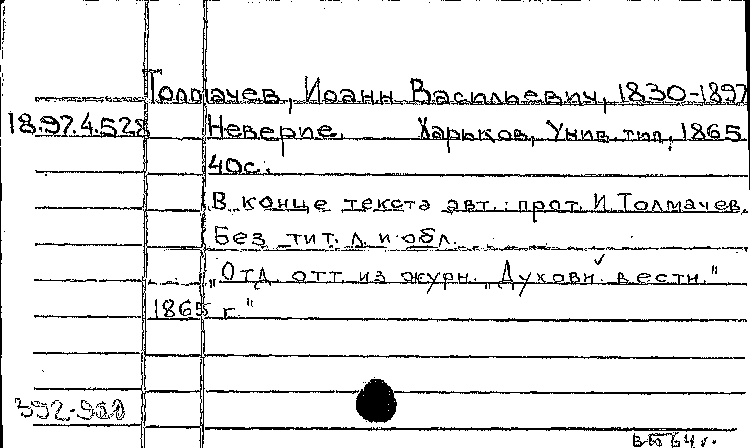 Толмачев, Иоанн Васильевич, 1830-1897
18.97.4.528 Неверие. Харьков, Унив. тип., 1865.
40с.
В конце текста авт.: прот. И. Толмачев.
Без тит. л. и обл.
"Отд. отт. из журн. "Духовн. вестн."
1865 г."